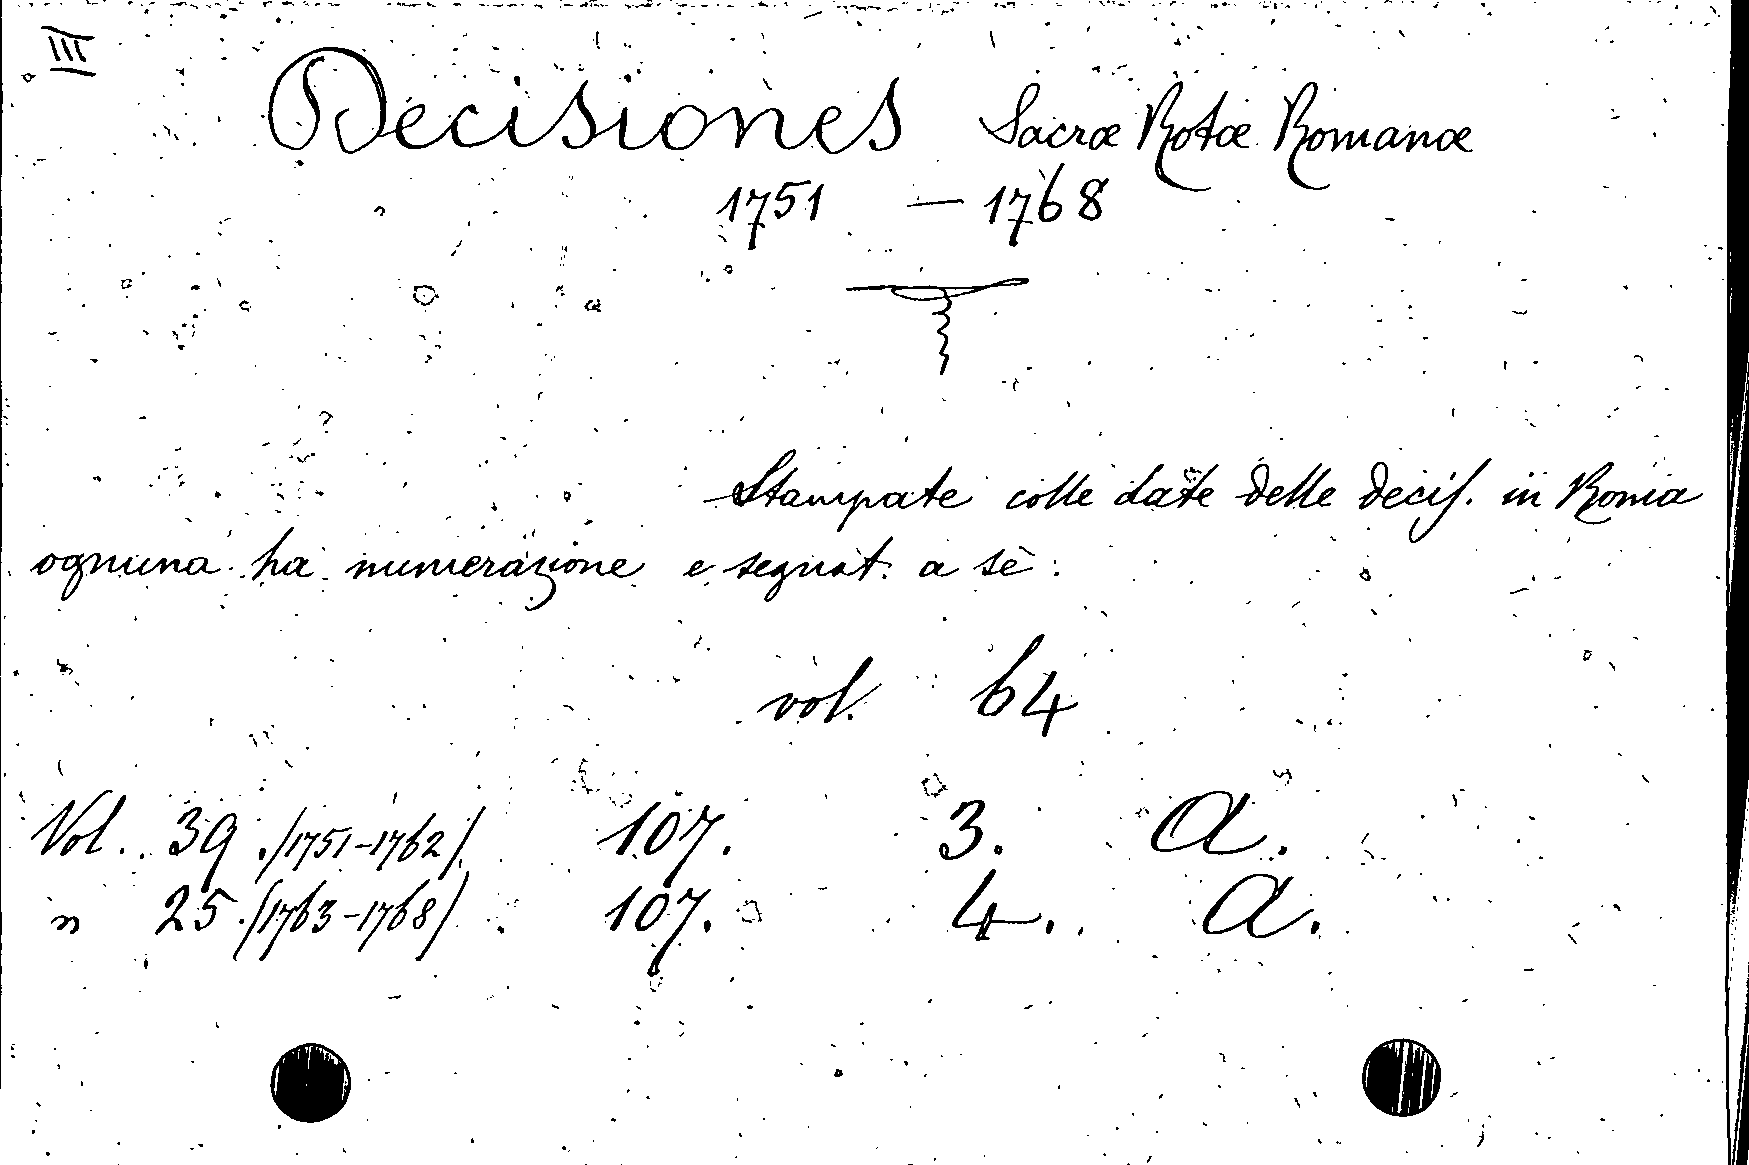 III
Decisiones Sacræ Rotæ Romanæ
1751 — 1768
Stampate colle date delle decis. in Roma
ognuna ha numerazione e segnat. a sè.
vol. 64
Vol. 39 (1751-1762) 107. 3. A.
" 25 (1763-1768) 107. 4. A.